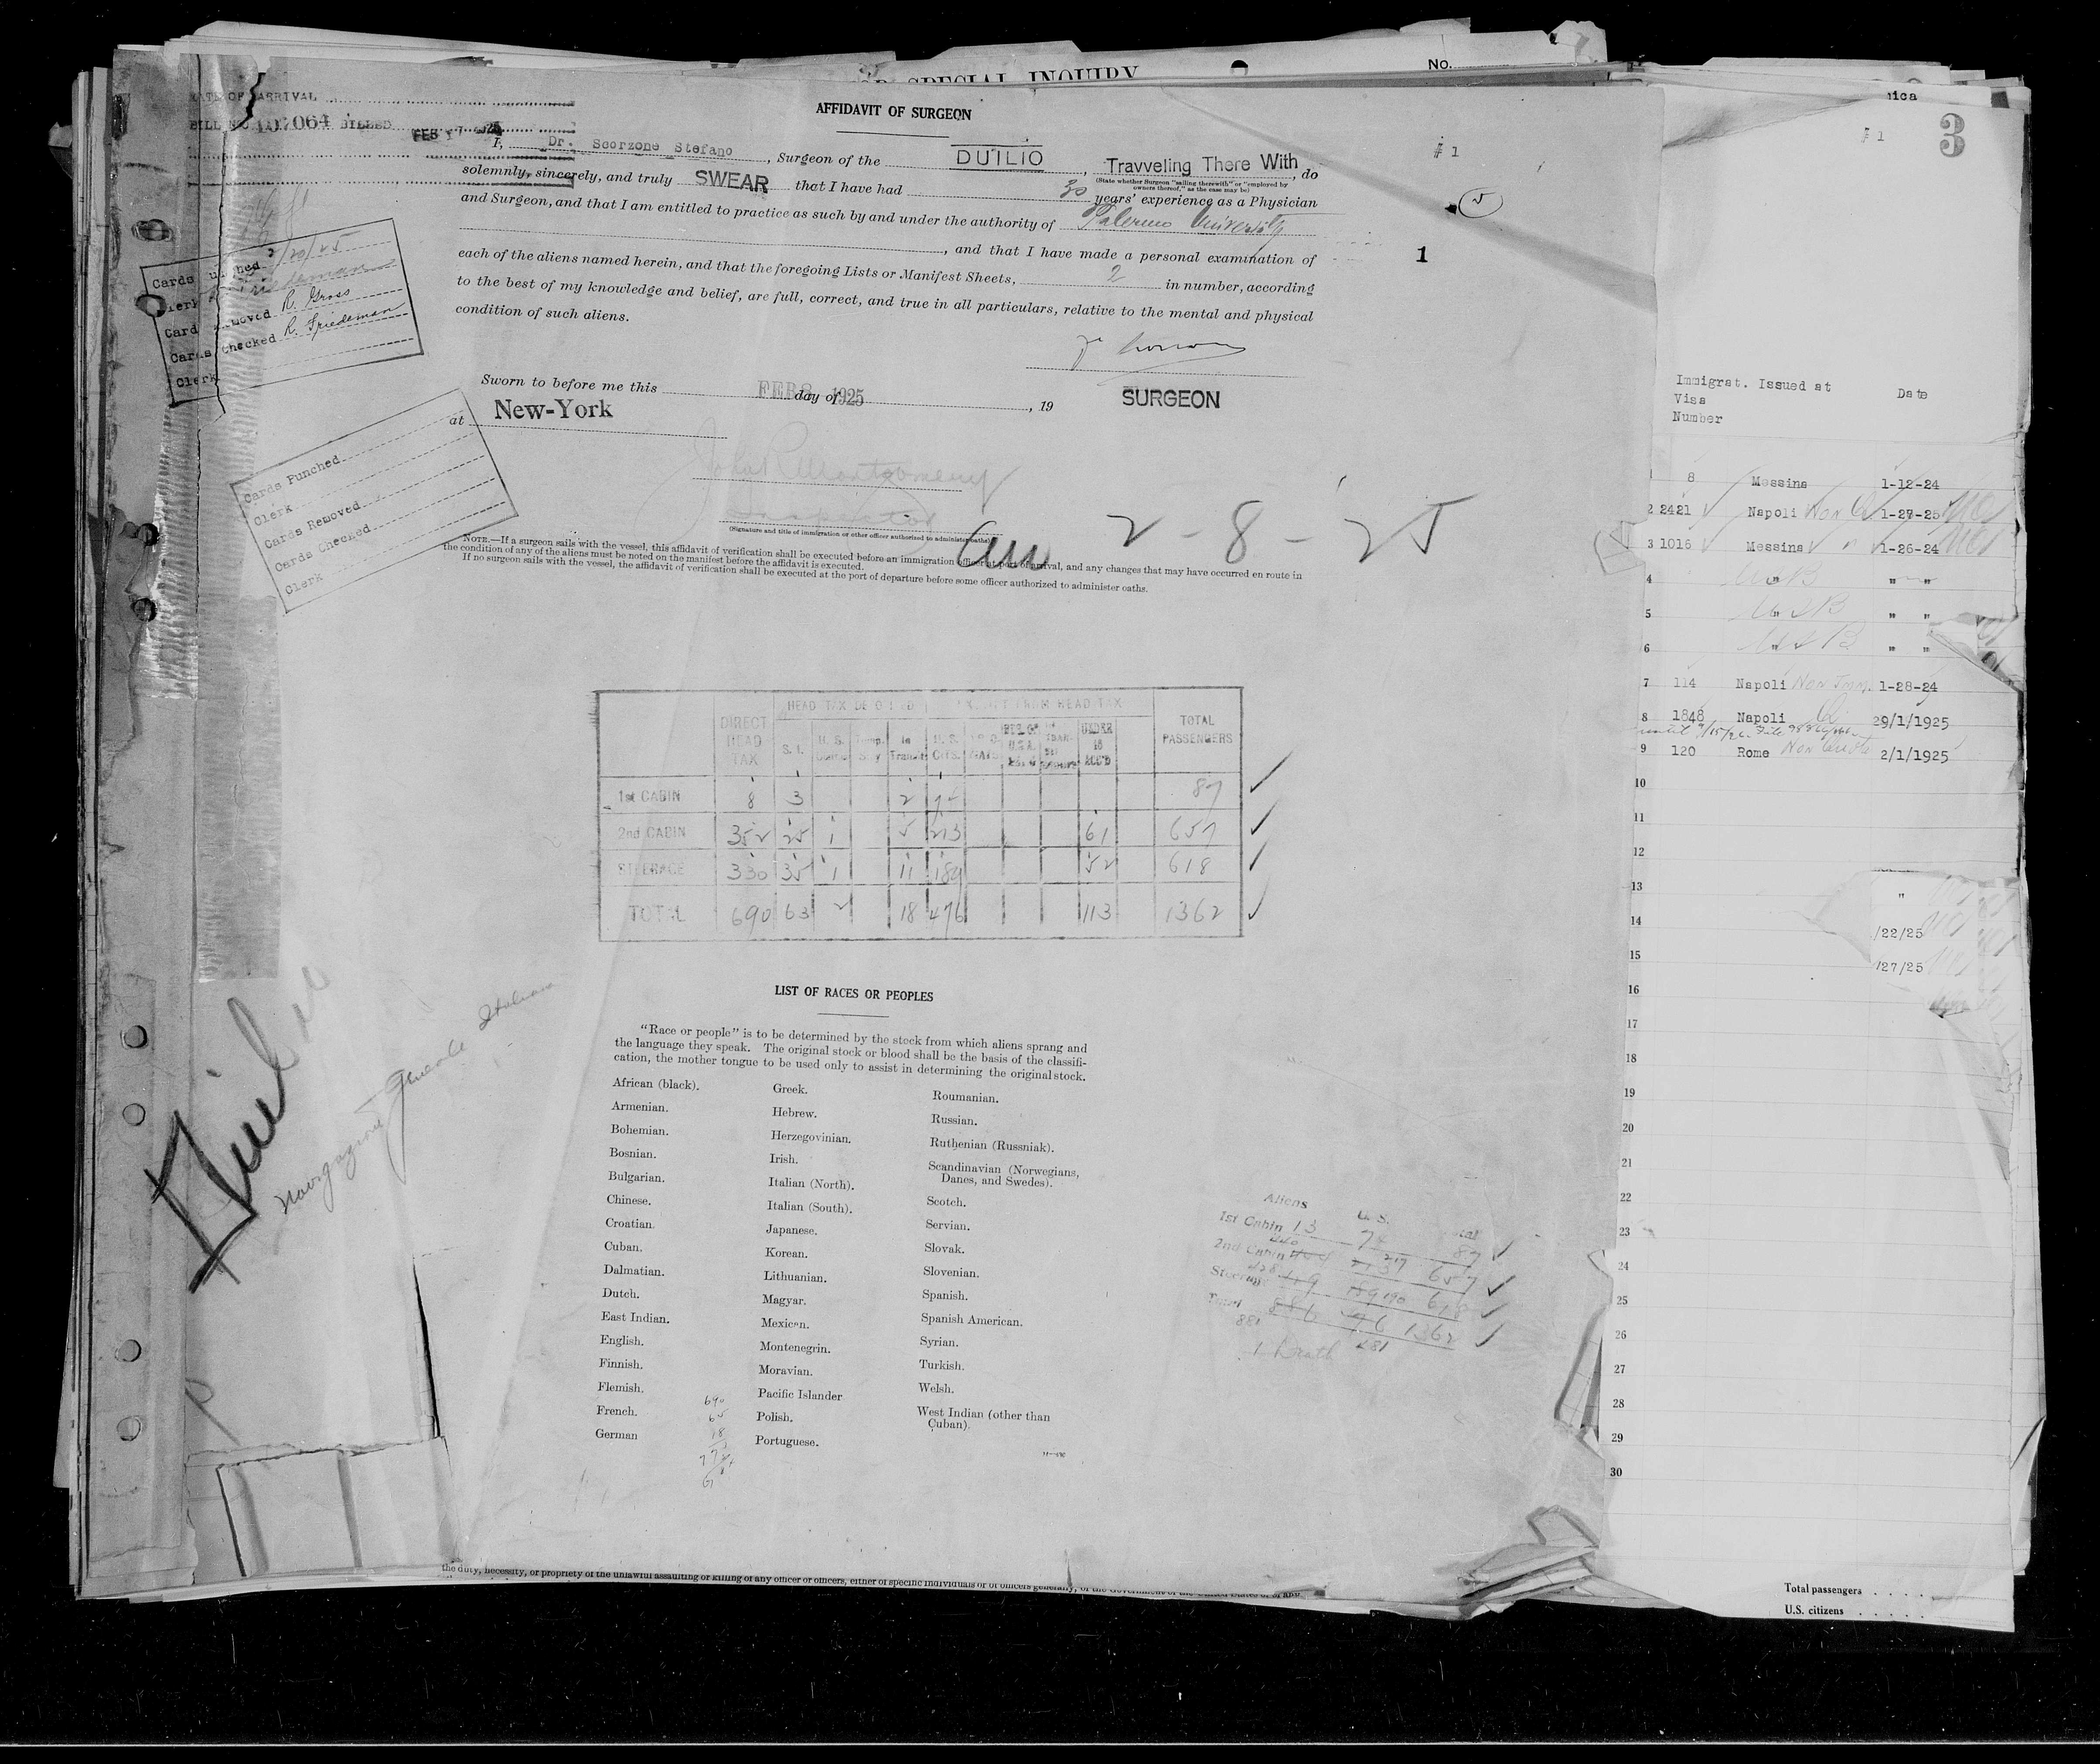 SPECIAL INQUIRY
No.
DATE OF ARRIVAL
BILL NO. 107064 BILLED FEB 17
AFFIDAVIT OF SURGEON
I, Dr. Scorzone Stefano, Surgeon of the DUILIO, Travveling There With, do
(State whether Surgeon "sailing therewith" or "employed by owners thereof," as the case may be)
solemnly, sincerely, and truly SWEAR that I have had 30 years' experience as a Physician
and Surgeon, and that I am entitled to practice as such by and under the authority of Palermo University
, and that I have made a personal examination of
each of the aliens named herein, and that the foregoing Lists or Manifest Sheets, 2 in number, according
to the best of my knowledge and belief, are full, correct, and true in all particulars, relative to the mental and physical
condition of such aliens.
SURGEON
Sworn to before me this FEB 8 1925 day of , 19
at New-York
John R Montgomery
Inspector
(Signature and title of immigration or other officer authorized to administer oaths)
2-8-25
NOTE.—If a surgeon sails with the vessel, this affidavit of verification shall be executed before an immigration officer at port of arrival, and any changes that may have occurred en route in
the condition of any of the aliens must be noted on the manifest before the affidavit is executed.
If no surgeon sails with the vessel, the affidavit of verification shall be executed at the port of departure before some officer authorized to administer oaths.
# 1
5
1
Cards Punched 2/20/25
Clerk Friedeman
Cards Removed R. Gross
Cards Checked R. Friedeman
Clerk
Cards Punched
Clerk
Cards Removed
Cards Checked
Clerk
DIRECT HEAD TAX
S. I.
In Transit
U. S. Cits.
UNDER 16 ACC'D
TOTAL PASSENGERS
1st CABIN 8 3 2 74 87
2nd CABIN 352 25 1 5 213 61 657
STEERAGE 330 35 1 11 189 52 618
TOTAL 690 63 2 18 476 113 1362
Duilio
Navigazione Generale Italiana
LIST OF RACES OR PEOPLES
"Race or people" is to be determined by the stock from which aliens sprang and
the language they speak. The original stock or blood shall be the basis of the classifi-
cation, the mother tongue to be used only to assist in determining the original stock.
African (black).
Armenian.
Bohemian.
Bosnian.
Bulgarian.
Chinese.
Croatian.
Cuban.
Dalmatian.
Dutch.
East Indian.
English.
Finnish.
Flemish.
French.
German
Greek.
Hebrew.
Herzegovinian.
Irish.
Italian (North).
Italian (South).
Japanese.
Korean.
Lithuanian.
Magyar.
Mexican.
Montenegrin.
Moravian.
Pacific Islander
Polish.
Portuguese.
Roumanian.
Russian.
Ruthenian (Russniak).
Scandinavian (Norwegians,
Danes, and Swedes).
Scotch.
Servian.
Slovak.
Slovenian.
Spanish.
Spanish American.
Syrian.
Turkish.
Welsh.
West Indian (other than
Cuban).
690
65
18
Aliens U. S. Total
1st Cabin 13 74 87
2nd Cabin 440 217 657
Steerage 428 189 190 618
Total 886 476 1362
881 481
1 Death
the duty, necessity, or propriety of the unlawful assaulting or killing of any officer or officers, either of specific individuals or of officers generally, of the Government of the United States or of any
# 1
3
Immigrat. Issued at Date
Visa
Number
1 8 Messina 1-12-24
2 2421 Napoli Non Q 1-27-25
3 1016 Messina 1-26-24
4 " " "
5 " " "
6 " " "
7 114 Napoli Non Imm. 1-28-24
8 1848 Napoli Q 29/1/1925
9 120 Rome Non Quota 2/1/1925
10
11
12
13 "
14 /22/25
15 /27/25
16
17
18
19
20
21
22
23
24
25
26
27
28
29
30
Total passengers
U.S. citizens